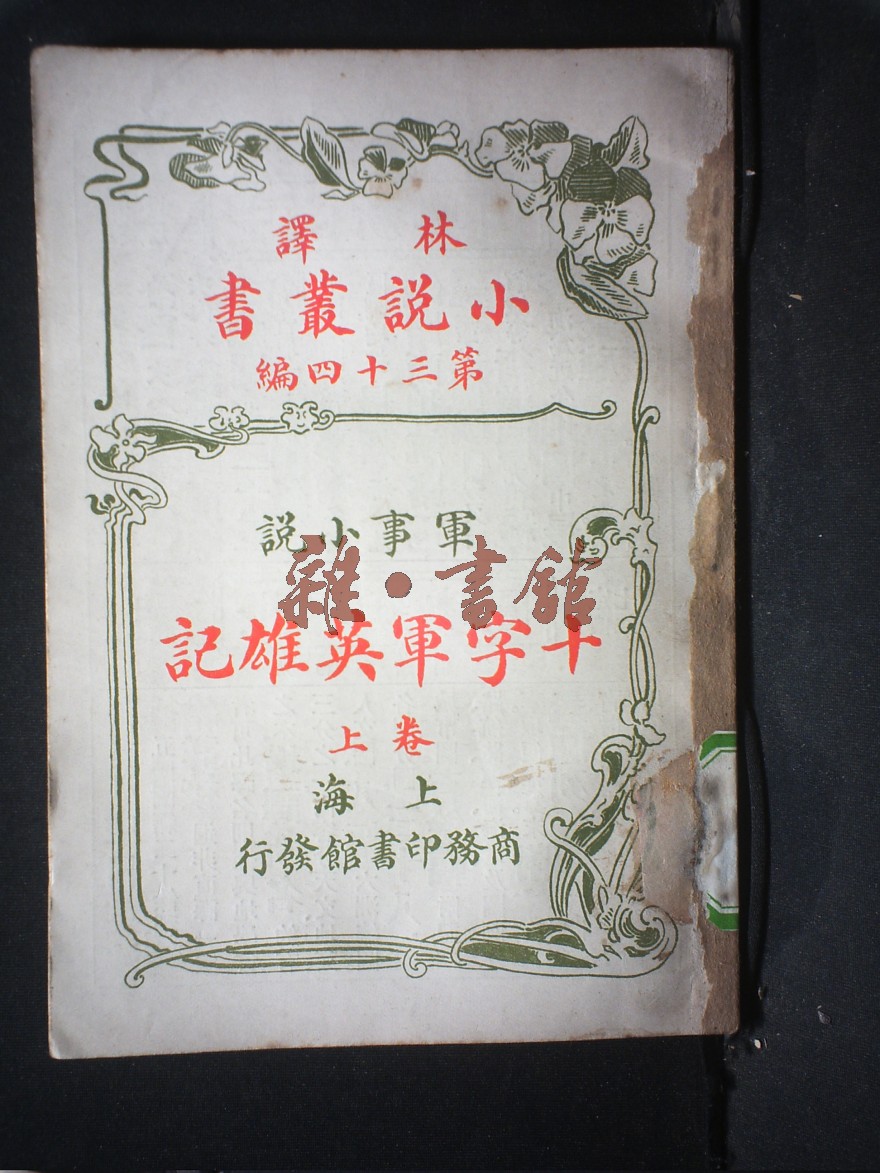 林譯
小説叢書
第三十四編
軍事小説
雜·書館
十字軍英雄記
卷上
上海
商務印書館發行